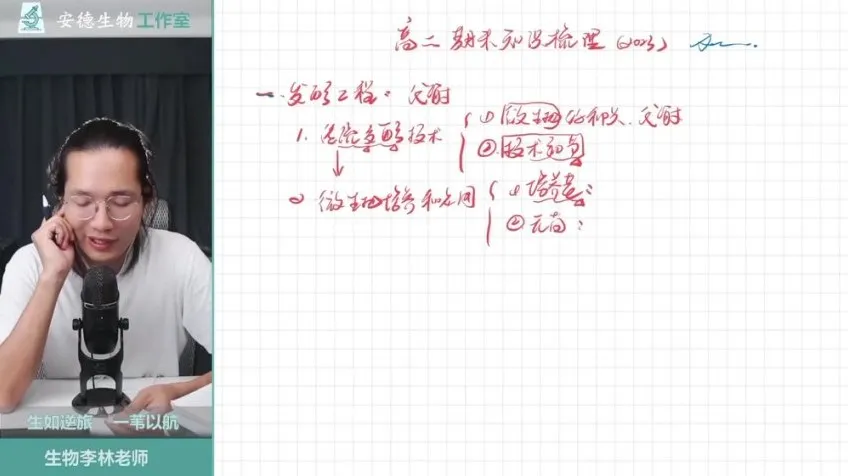 安德生物工作室
高二期末知识梳理(2023)
一.发酵工程：代谢
1.传统发酵技术
①微生物的种类.代谢
②技术动点
2 微生物培养和应用
①培养基：
②无菌：
生如逆旅 一苇以航
生物李林老师